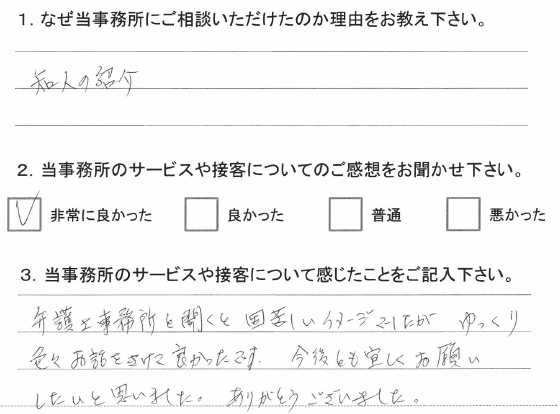 1. なぜ当事務所にご相談いただけたのか理由をお教え下さい。
知人の紹介
2. 当事務所のサービスや接客についてのご感想をお聞かせ下さい。
非常に良かった 良かった 普通 悪かった
3. 当事務所のサービスや接客について感じたことをご記入下さい。
弁護士事務所と聞くと固苦しいイメージでしたが ゆっくり
色々お話をきけて良かったです. 今後とも宜しくお願い
したいと思いました。ありがとうございました。